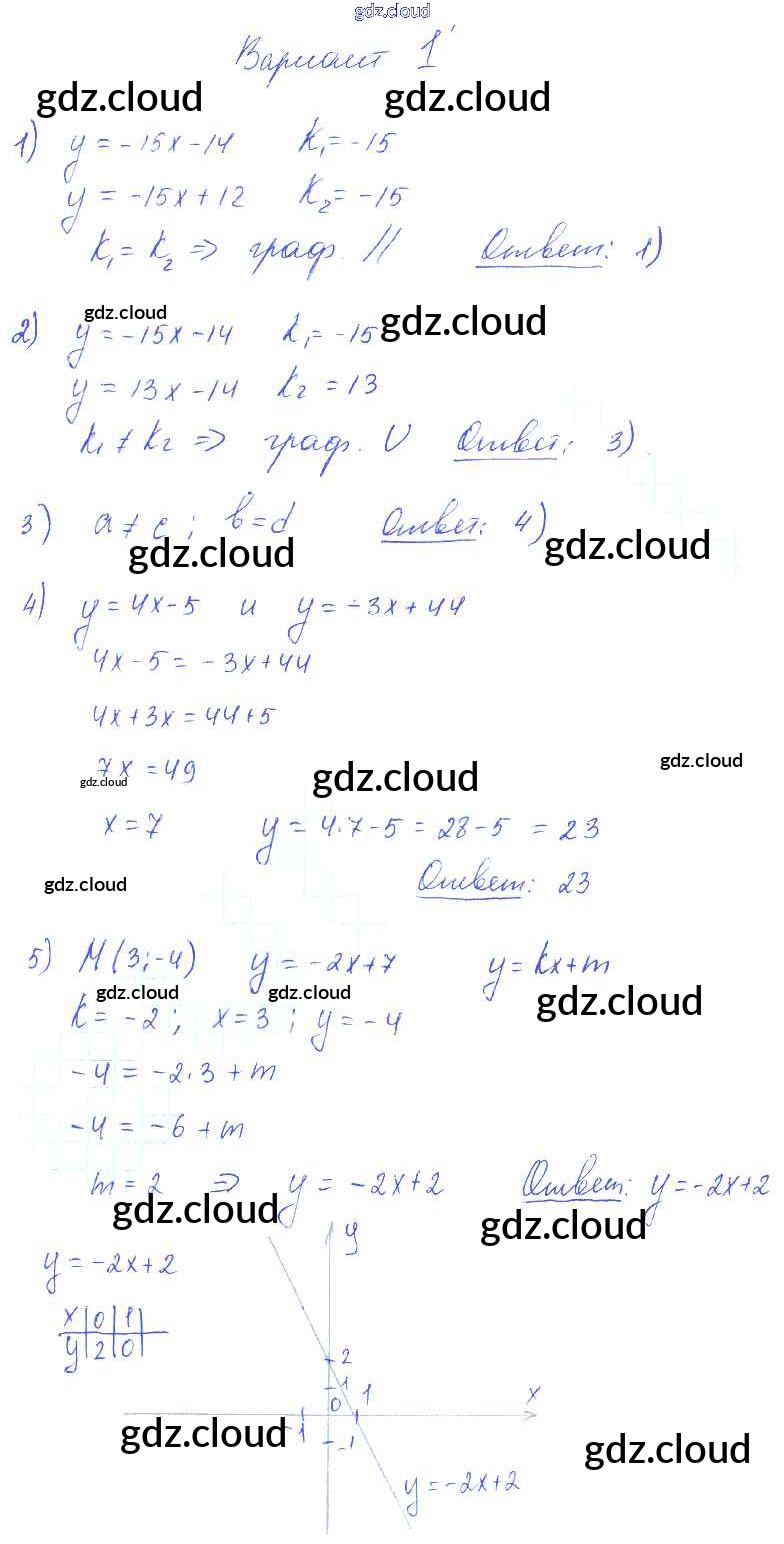 gdz.cloud
Вариант 1
gdz.cloud gdz.cloud
1) y = -15x -14 K₁ = -15
y = -15x + 12 K₂ = -15
K₁ = K₂ => граф. // Ответ: 1)
gdz.cloud gdz.cloud
2) y = -15x -14 k₁ = -15
y = 13x -14 K₂ = 13
K₁ ≠ K₂ => граф. U Ответ: 3)
3) a ≠ c ; b = d Ответ: 4)
gdz.cloud gdz.cloud
4) y = 4x - 5 и y = -3x + 44
4x - 5 = -3x + 44
4x + 3x = 44 + 5
7x = 49
gdz.cloud gdz.cloud gdz.cloud
x = 7 y = 4·7 - 5 = 28 - 5 = 23
gdz.cloud Ответ: 23
5) M(3;-4) y = -2x + 7 y = kx + m
gdz.cloud gdz.cloud gdz.cloud
k = -2 ; x = 3 ; y = -4
-4 = -2·3 + m
-4 = -6 + m
m = 2 => y = -2x + 2 Ответ: y = -2x + 2
gdz.cloud gdz.cloud
y
y = -2x + 2
x | 0 | 1 |
y | 2 | 0 |
2
1
0 1 x
-1 -1
gdz.cloud gdz.cloud
y = -2x + 2